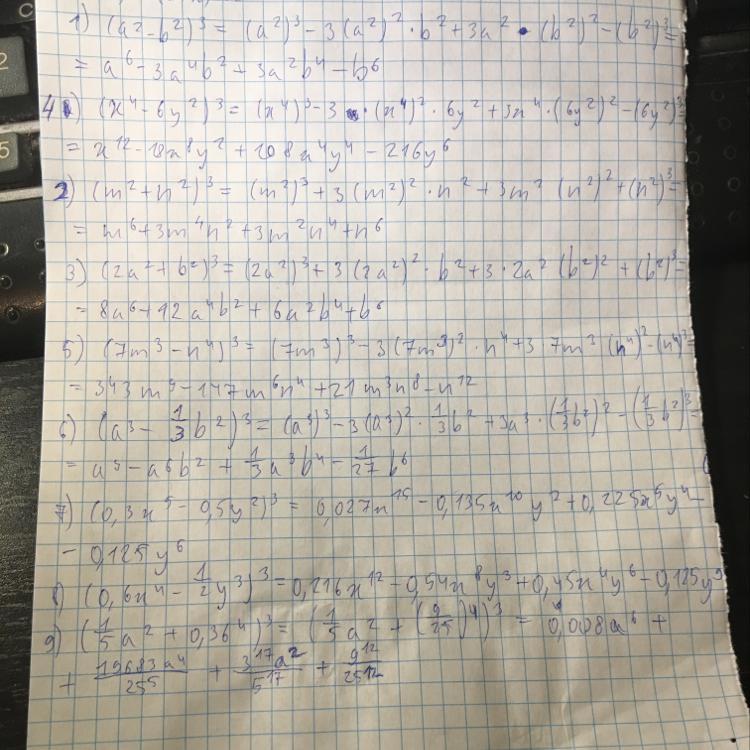 1) (a² - b²)³ = (a²)³ - 3(a²)² · b² + 3a² · (b²)² - (b²)³ =
= a⁶ - 3a⁴b² + 3a²b⁴ - b⁶
4) (x⁴ - 6y²)³ = (x⁴)³ - 3 · (x⁴)² · 6y² + 3x⁴ · (6y²)² - (6y²)³ =
= x¹² - 18x⁸y² + 108x⁴y⁴ - 216y⁶
2) (m² + n²)³ = (m²)³ + 3(m²)² · n² + 3m² (n²)² + (n²)³ =
= m⁶ + 3m⁴n² + 3m²n⁴ + n⁶
3) (2a² + b²)³ = (2a²)³ + 3(2a²)² · b² + 3 · 2a² (b²)² + (b²)³ =
= 8a⁶ + 12a⁴b² + 6a²b⁴ + b⁶
5) (7m³ - n⁴)³ = (7m³)³ - 3(7m³)² · n⁴ + 3 · 7m³ (n⁴)² - (n⁴)³ =
= 343m⁹ - 147m⁶n⁴ + 21m³n⁸ - n¹²
6) (a³ - 1/3 b²)³ = (a³)³ - 3(a³)² · 1/3 b² + 3a³ · (1/3 b²)² - (1/3 b²)³ =
= a⁹ - a⁶b² + 1/3 a³b⁴ - 1/27 b⁶
7) (0,3x⁵ - 0,5y²)³ = 0,027x¹⁵ - 0,135x¹⁰y² + 0,225x⁵y⁴ -
- 0,125y⁶
8) (0,6x⁴ - 1/2 y³)³ = 0,216x¹² - 0,54x⁸y³ + 0,45x⁴y⁶ - 0,125y⁹
9) (1/5 a² + 0,36⁴)³ = (1/5 a² + (9/25)⁴)³ = 0,008a⁶ +
+ 19683a⁴/25⁵ + 3¹⁷a²/5¹⁷ + 9¹²/25¹²